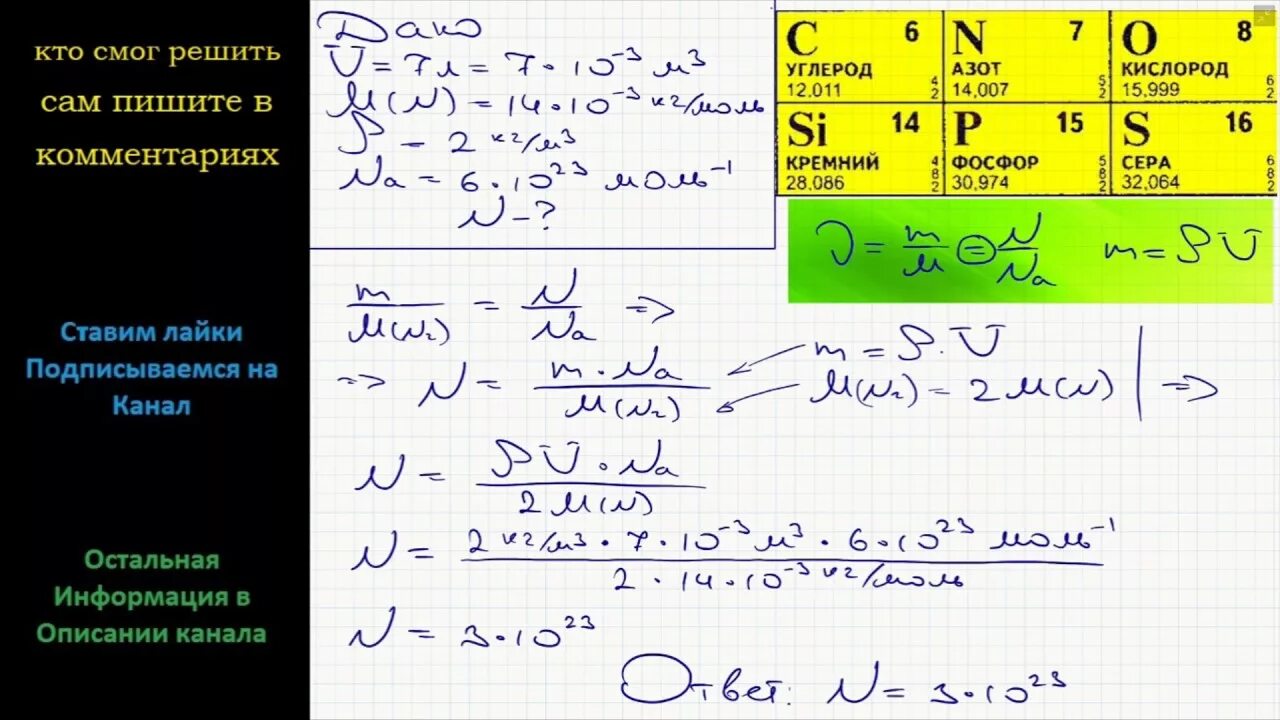 кто смог решить
сам пишите в
комментариях
Ставим лайки
Подписываемся на
Канал
Остальная
Информация в
Описании канала
Дано
V = 7л = 7·10⁻³ м³
M(N) = 14·10⁻³ кг/моль
ρ = 2 кг/м³
Na = 6·10²³ моль⁻¹
N - ?
C 6 N 7 O 8
УГЛЕРОД АЗОТ КИСЛОРОД
12,011 4 2 14,007 5 2 15,999 6 2
Si 14 P 15 S 16
КРЕМНИЙ ФОСФОР СЕРА
28,086 4 8 2 30,974 5 8 2 32,064 6 8 2
ν = m/M = N/Na m = ρV
m/M(N₂) = N/Na =>
=> N = m·Na/M(N₂)
m = ρ·V
M(N₂) = 2M(N) | =>
N = ρV·Na/2M(N)
N = 2 кг/м³ · 7·10⁻³ м³ · 6·10²³ моль⁻¹/2·14·10⁻³ кг/моль
N = 3·10²³
Ответ: N = 3·10²³